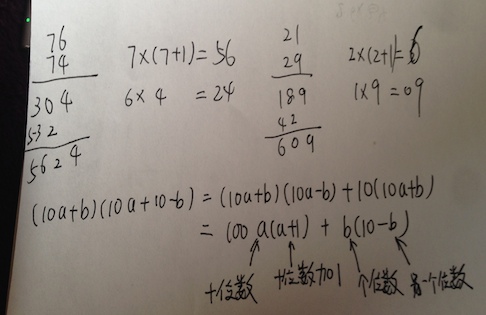 76
74
304
532
5624
7×(7+1)=56
6×4 =24
21
29
189
42
609
2×(2+1)=6
1×9=09
(10a+b)(10a+10-b) = (10a+b)(10a-b)+10(10a+b)
= 100 a(a+1) + b(10-b)
十位数 十位数加1 个位数 另一个位数